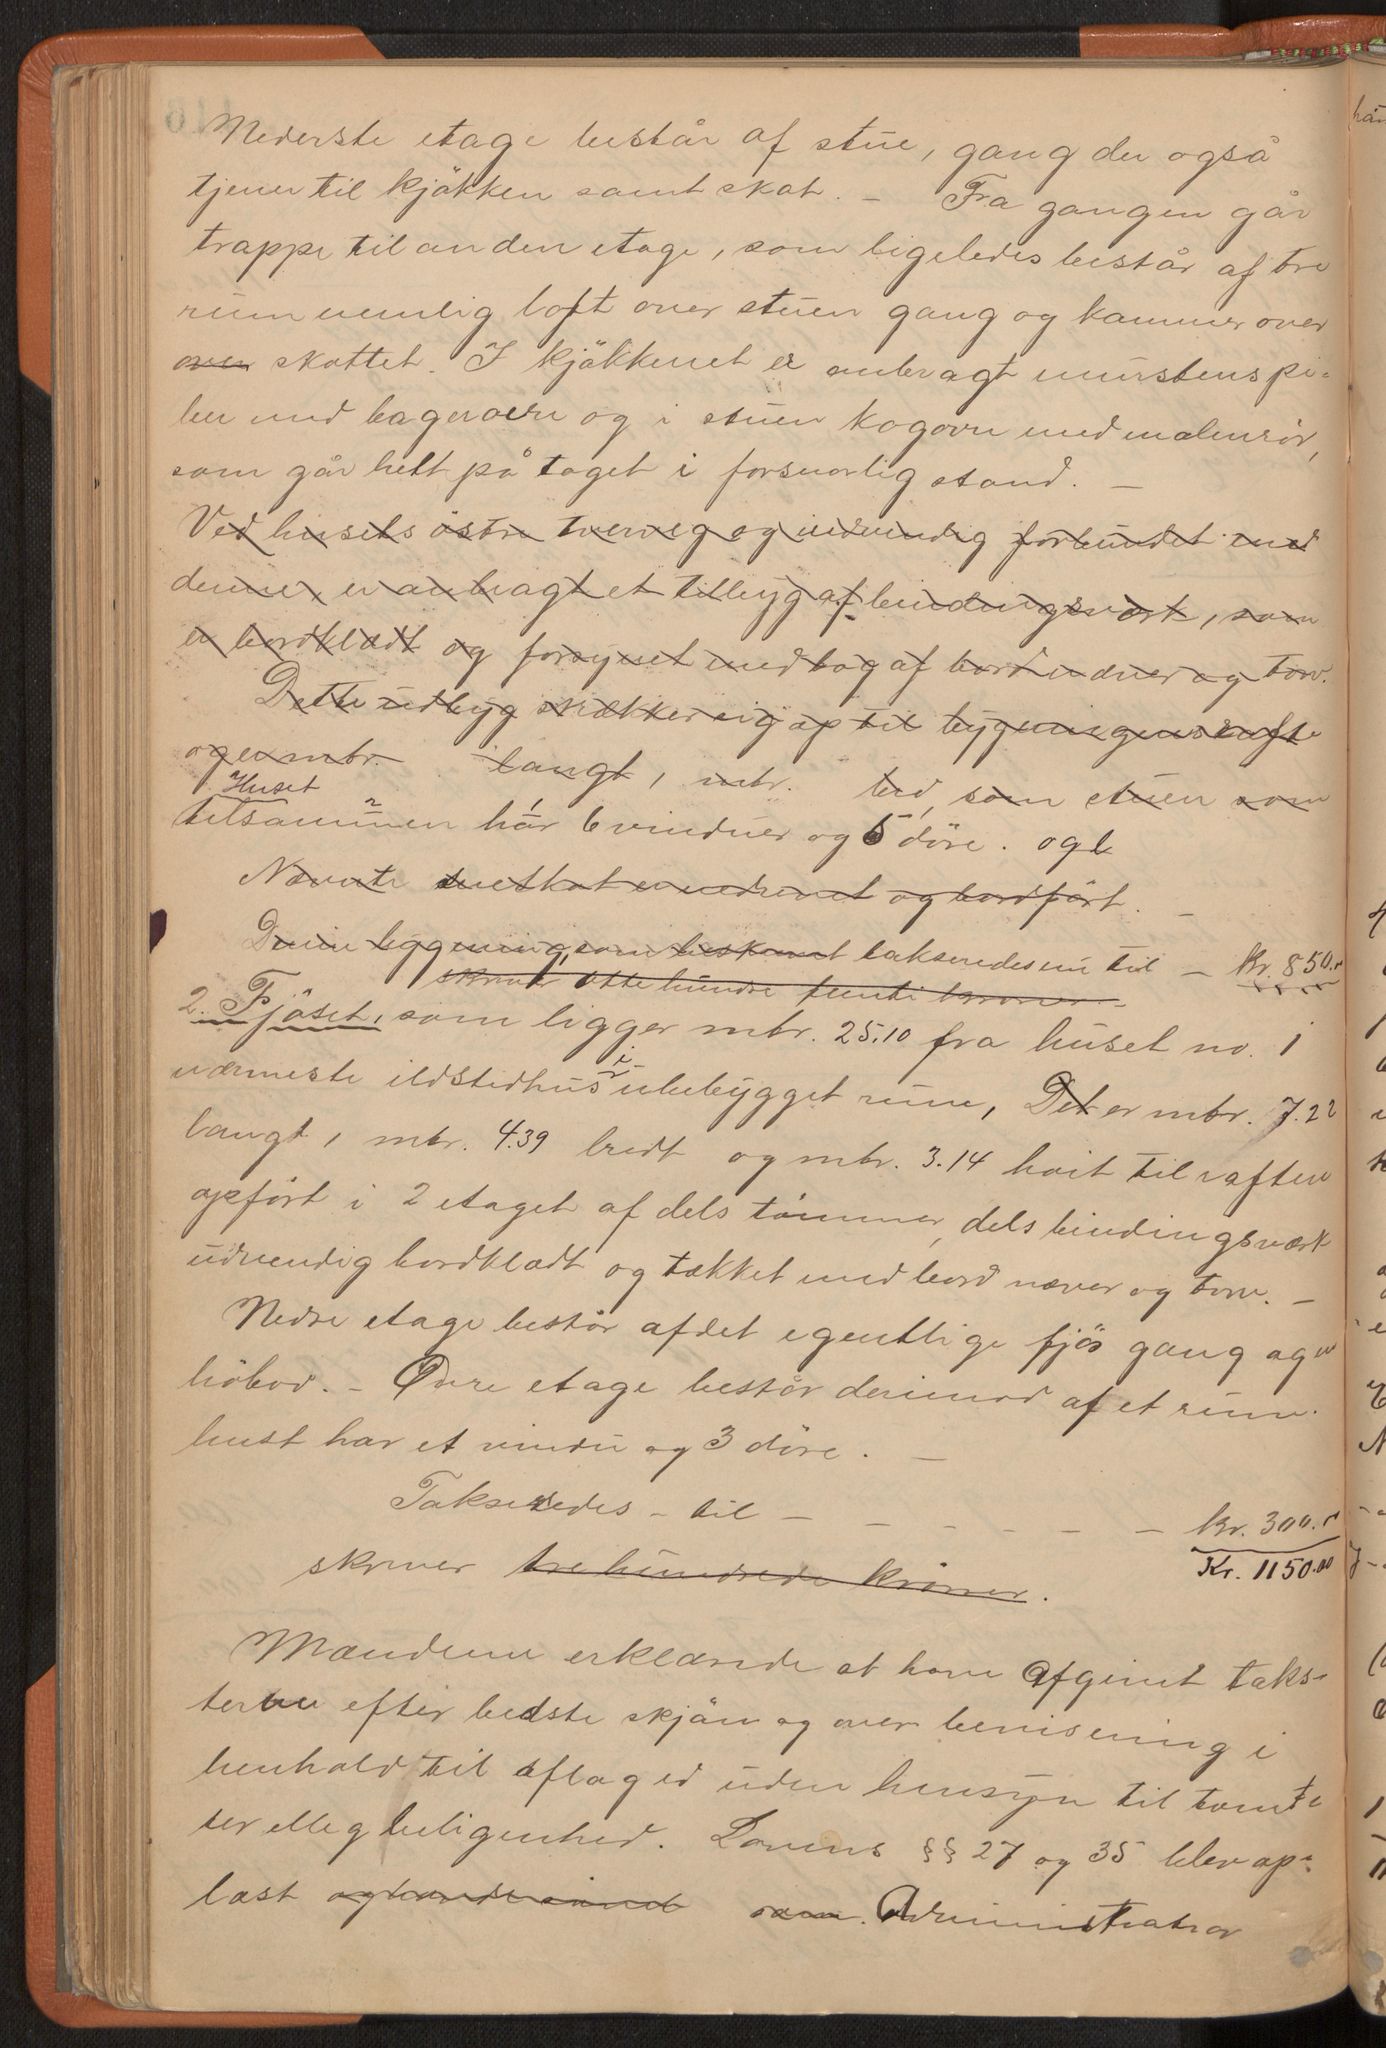 Nederste etage består af stue, gang der også
tjener til kjøkken samt skot. – Fra gangen går
trappe til anden etage, som ligeledes består af tre
rum nemlig loft over stuen gang og kammer over
over skottet. I kjøkkenet er anbragt murstenspi-
ber med bagerovn og i stuen kogovn med malmrör,
som går helt på taget i forsvarlig stand. –
Ved husets östre tverveg og indvendig forbundet med
denne, er anbragt et tilbyg af bindingsværk, som
er bordklædt og forsynet med tag af bord næver og torv.
Dette udbyg strækker sig op til bygningens rafte
og er mtr. langt, mtr. bred, som stuen som
Huset
tilsammen har 6 vinduer og 5 döre. og 2
Nævnte skot er udrevet og bordfört. –
Denne bygning, som beskrevet takseredes nu til – kr. 850.
skriver otte hundre femti kroner
2. Fjöset, som ligger mtr. 25.10 fra huset no. 1
nærmeste ildstedhus i ubebygget rum, Det er mtr. 7.22
langt, mtr. 4.39 bredt og mtr. 3.14 høit til raften
opfört i 2 etaget af dels tömmer, dels bindingsværk
udvendig bordklædt og tækket med bord næver og torv. –
Nedre etage består af det egentlige fjös gang og en
höbod. – Övre etage består derimod af et rum.
hust har et vindu og 3 döre. –
Takseredes – til – – – – – – kr. 300.
skriver tre hundrede kroner. Kr. 1150.00
Mændene erklærede at have afgivet taks-
terne efter bedste skjön og overbevisning i
henhold til aflagd uden hensyn til tomte
ter elleg beligenhed. Lovens §§ 27 og 35 blev op-
læst Administrator